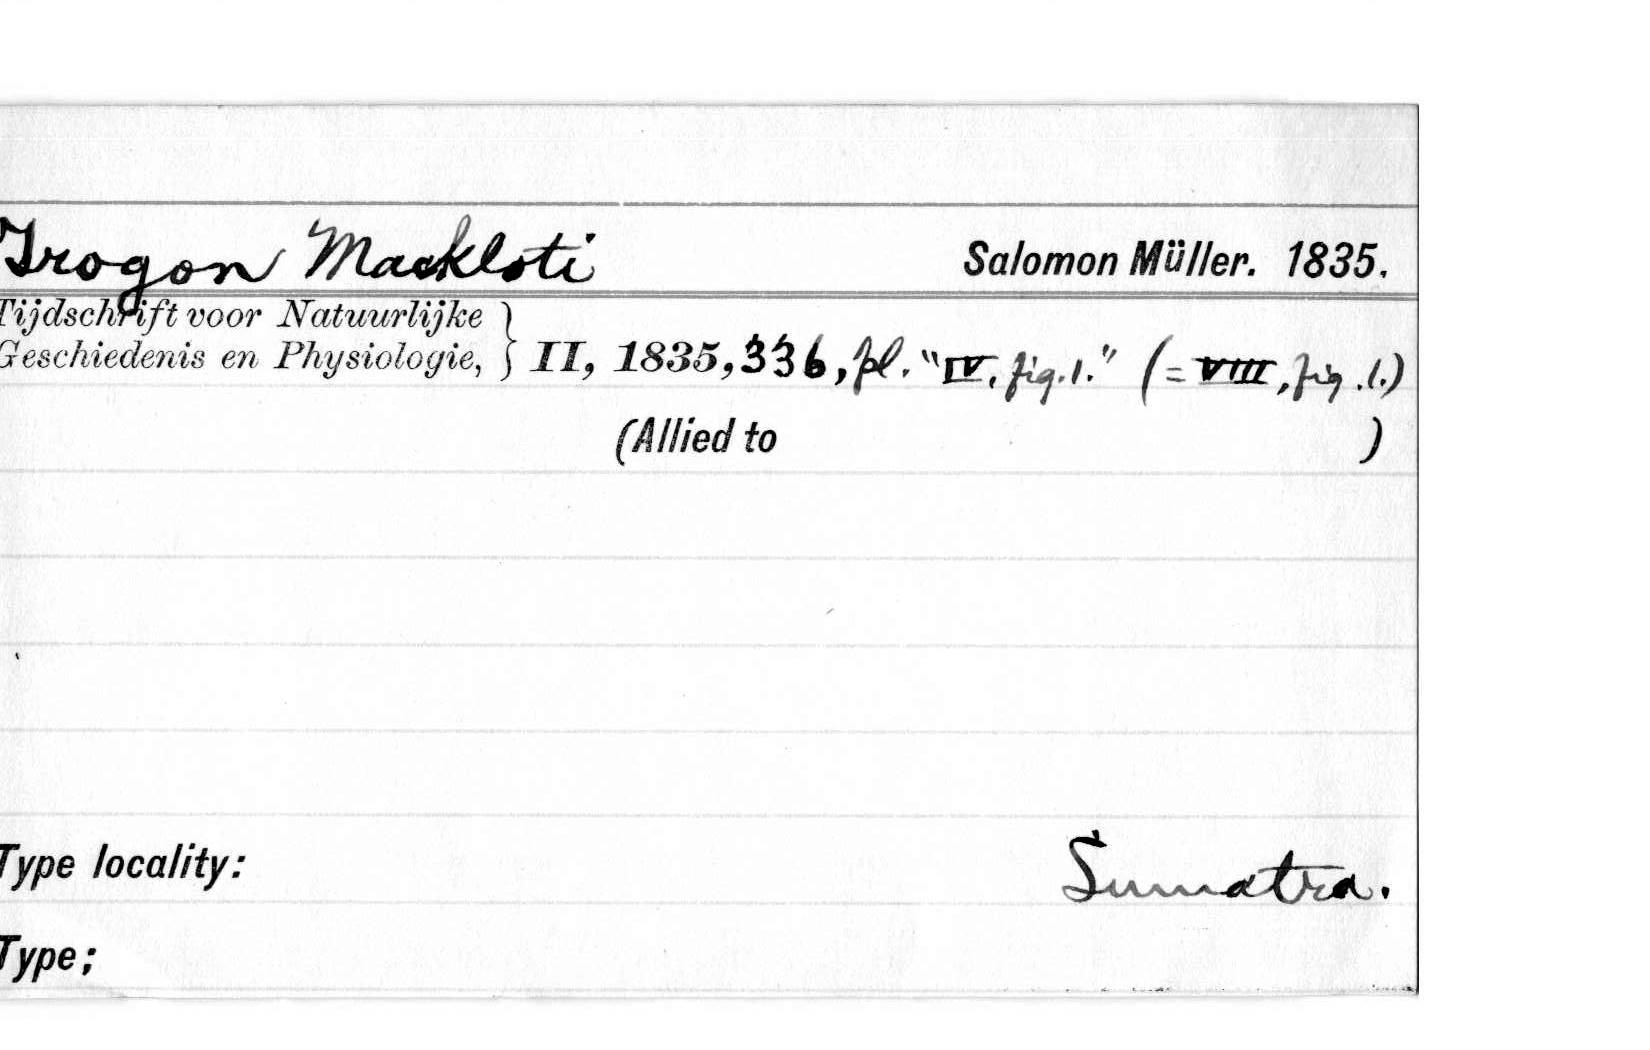 Trogon Mackloti Salomon Müller. 1835.
Tijdschrift voor Natuurlijke
Geschiedenis en Physiologie, } II, 1835, 336, pl. "IV, fig. 1." (= VIII, fig. 1.)
(Allied to )
Type locality: Sumatra.
Type;